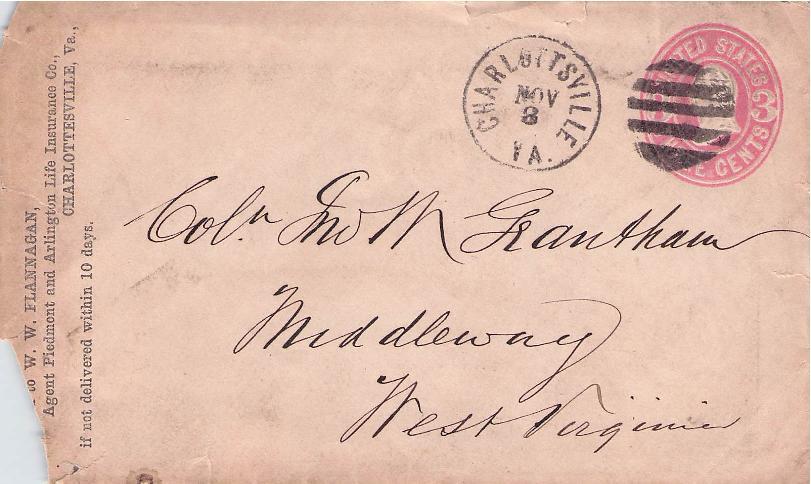 to W. W. FLANNAGAN,
Agent Piedmont and Arlington Life Insurance Co.,
CHARLOTTESVILLE, Va.,
if not delivered within 10 days.
CHARLOTTSVILLE
NOV
8
VA.
UNITED STATES
3 3
CENTS
Coln Jno W Grantham
Middleway
West Virginia